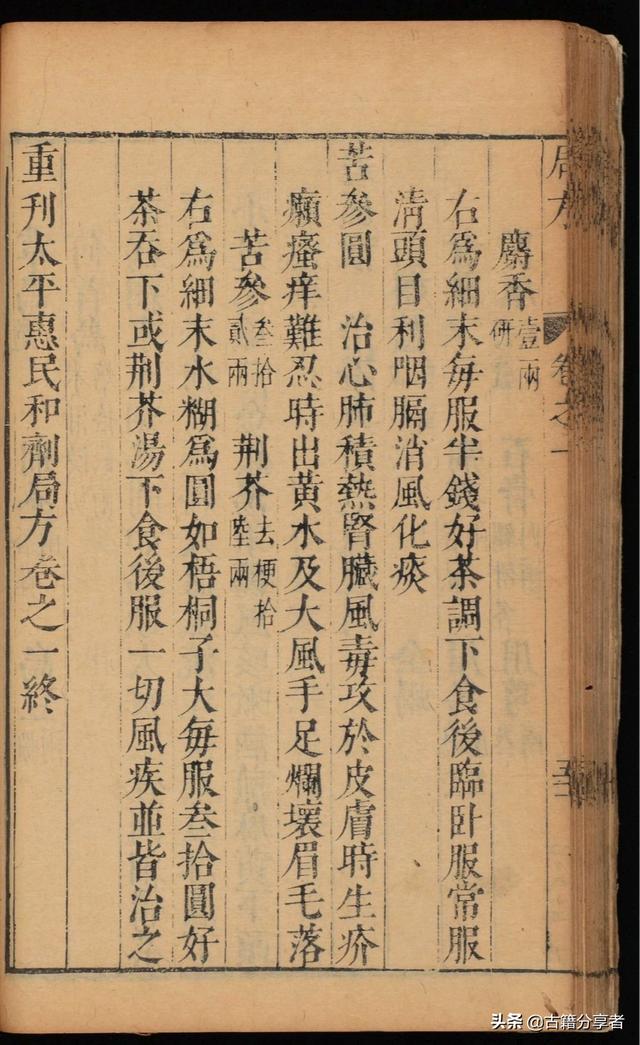 局方 卷之一
麝香壹兩研
右爲細末每服半錢好茶調下食後臨卧服常服
清頭目利咽膈消風化痰
苦參圓 治心肺積熱腎臟風毒攻於皮膚時生疥
癩瘙痒難忍時出黄水及大風手足爛壞眉毛落
苦參叁拾貳兩 荆芥去梗拾陸兩
右爲細末水糊爲圓如梧桐子大每服叁拾圓好
茶吞下或荆芥湯下食後服一切風疾並皆治之
重刋太平惠民和劑局方卷之一終
头条 @古籍分享者